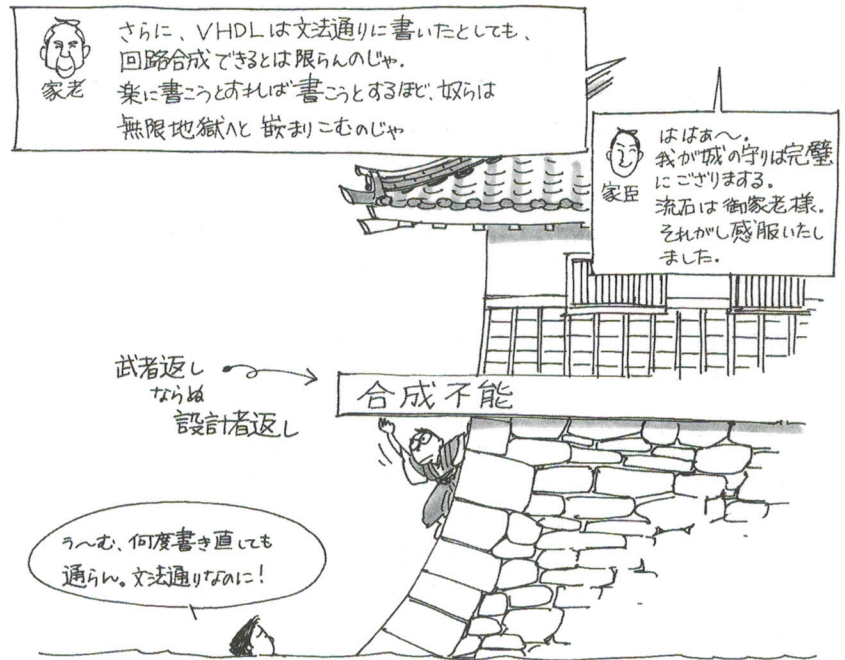 さらに、VHDLは文法通りに書いたとしても、
回路合成できるとは限らんのじゃ.
楽に書こうとすれば書こうとするほど、奴らは
無限地獄へと嵌まりこむのじゃ
家老
ははぁ〜.
我が城の守りは完璧
にござりまする.
流石は御家老様.
それがし感服いたし
ました.
家臣
武者返し
ならぬ
設計者返し
合成不能
う〜む、何度書き直しても
通らん。文法通りなのに!